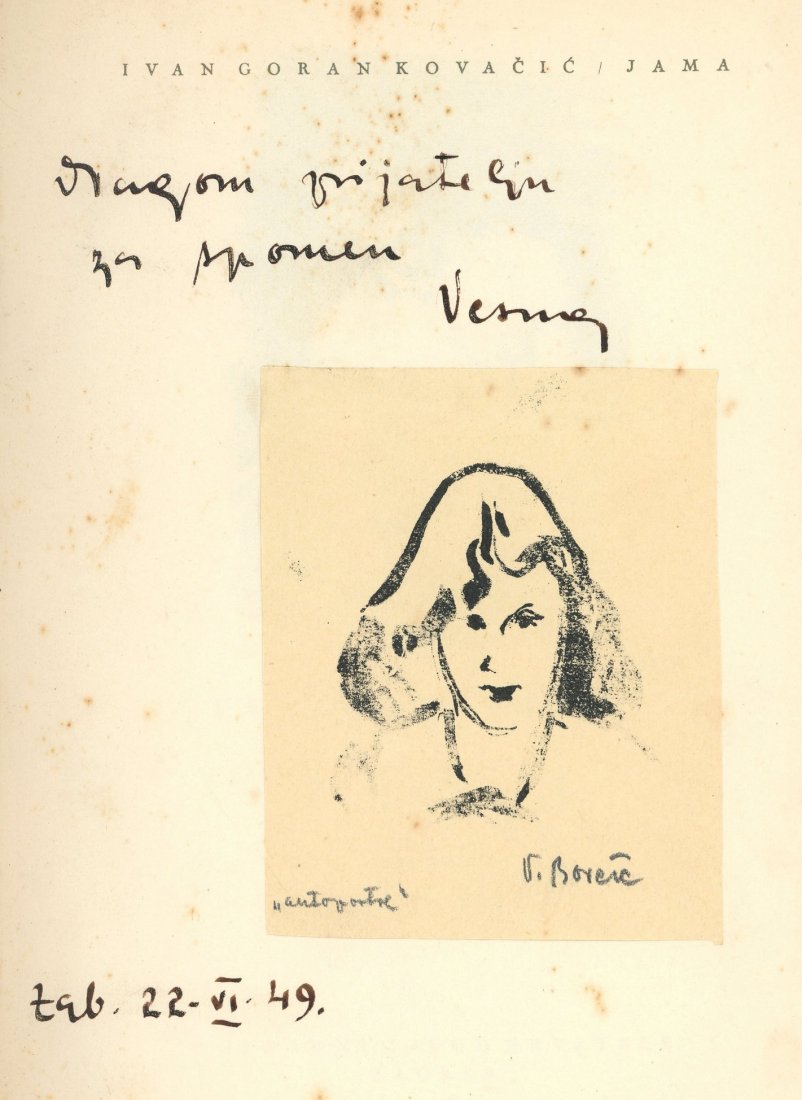 IVAN GORAN KOVAČIĆ / JAMA
Dragom prijatelju
za spomen
Vesna
V. Borčić
„autoportre"
Zgb. 22-VI-49.